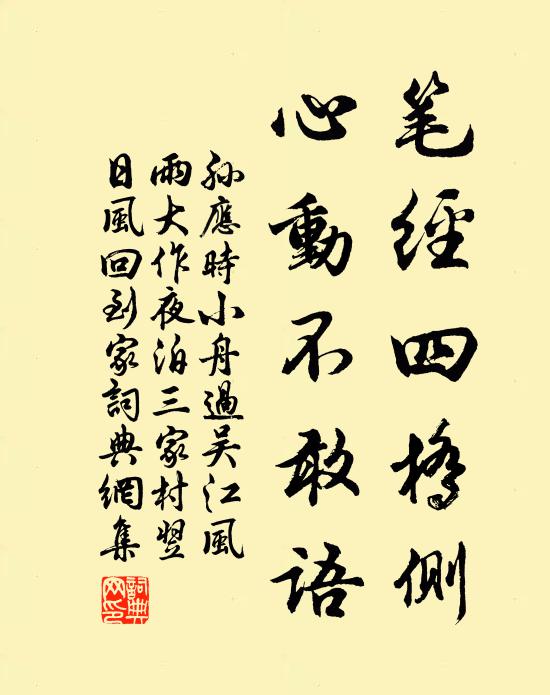 笔經四橋側
心動不敢語
孫應時小舟過吴江風
雨大作夜泊三家村翌
日風回到家詞典網集
詞典
网印